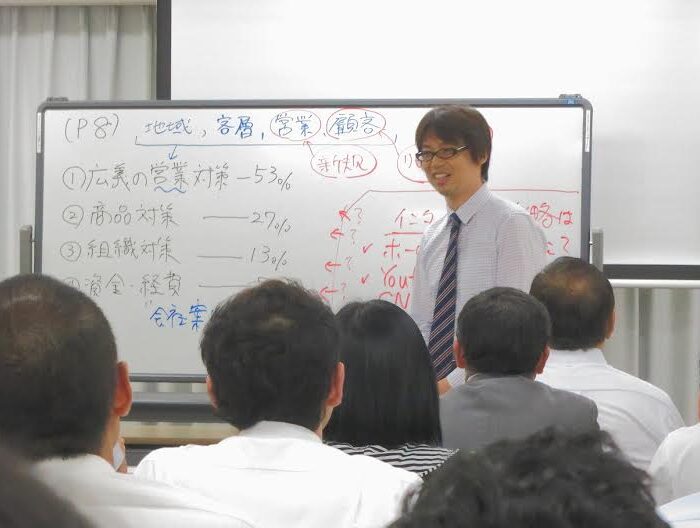 (P8) 地域, 客層, 営業, 顧客
新規
①広義の営業対策 — 53%
②商品対策 — 27%
③組織対策 — 13%
資金・経費 —
"会社案
? インタ 略は
? ✓ ホー ?
? ✓ You